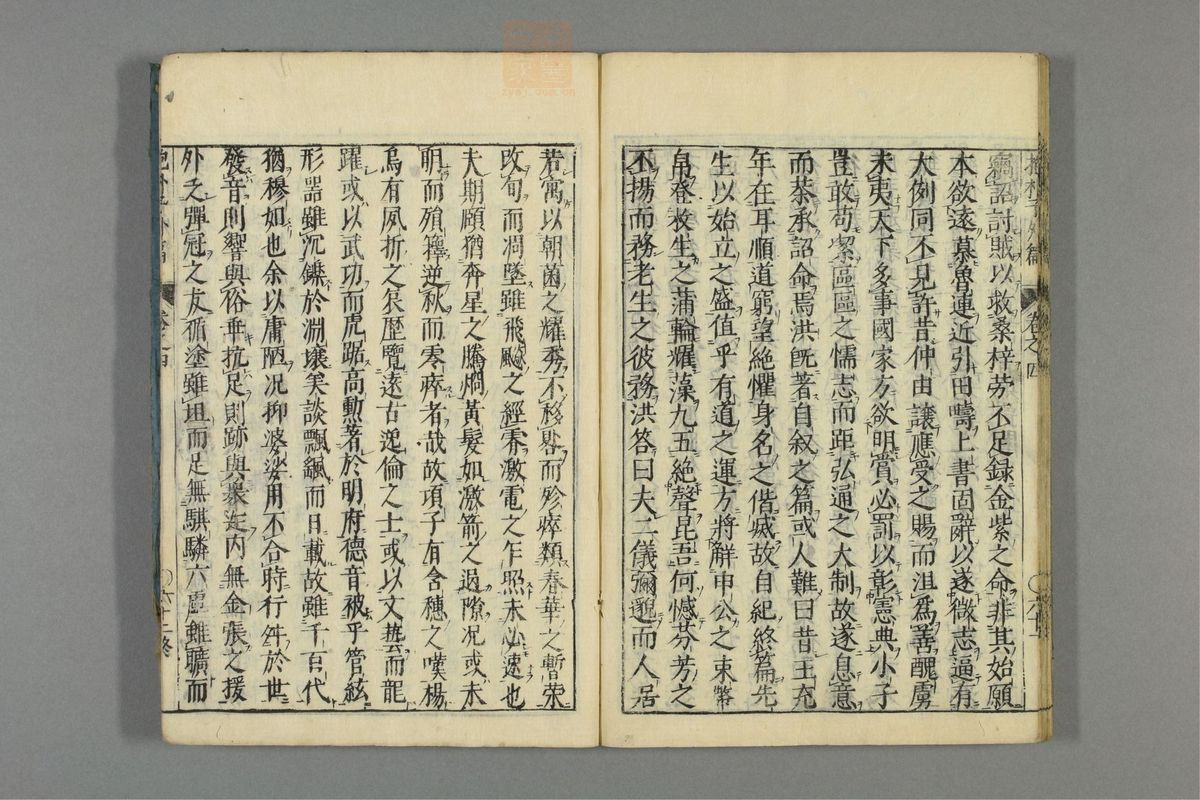 竊詔討賊以救桑梓勞不足録金紫之命非其始願
本欲遠慕魯連近引田疇上書固辭以遂微志適有
大例同不見許昔仲由讓應受之賜而沮爲善醜虜
未夷天下多事國家方欲明賞必罰以彰憲典小子
豈敢苟潔區區之懦志而距弘通之大制故遂息意
而恭承詔命焉洪既著自叙之篇或人難曰昔王充
年在耳順道窮望絶懼身名之偕滅故自紀終篇先
生以始立之盛值乎有道之運方將解申公之束帛
登枚生之蒲輪耀藻九五絶聲昆吾何憾芬芳之
不揚而務老生之彼務洪答曰夫二儀彌邈而人居
若寓以朝菌之耀秀不移晷而殄瘁類春華之暫榮
改旬而凋墜雖飛飈之經霄激電之乍照未必速也
夫期頤猶奔星之騰烟黃髮如激箭之過隙况或未
萌而殞籜逆秋而零瘁者哉故項子有含穗之嘆楊
烏有夙折之哀歷覽遠古逸倫之士或以文藝而龍
躍或以武功而虎踞高勳著於明府德音被乎管絃
形器雖沉鑠於淵壤美談飄颻而日載故雖千百代
猶穆如也余以庸陋况抑婆娑用不合時行舛於世
發音則響與俗乖抗足則跡與衆迕内無金張之援
外乏彈冠之友循塗雖坦而足無騏驎六虛雖曠而
抱朴子外篇 卷之四